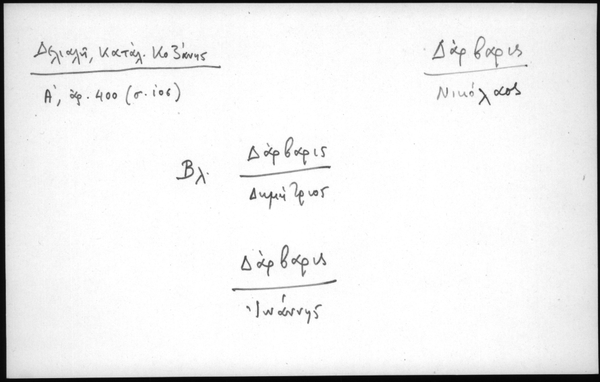 Δελιαλῆ, Κατάλ. Κοζάνης
Α', ἀρ. 400 (σ. 105)
Δάρβαρις
Νικόλαος
Βλ. Δάρβαρις
Δημήτριος
Δάρβαρις
Ἰωάννης